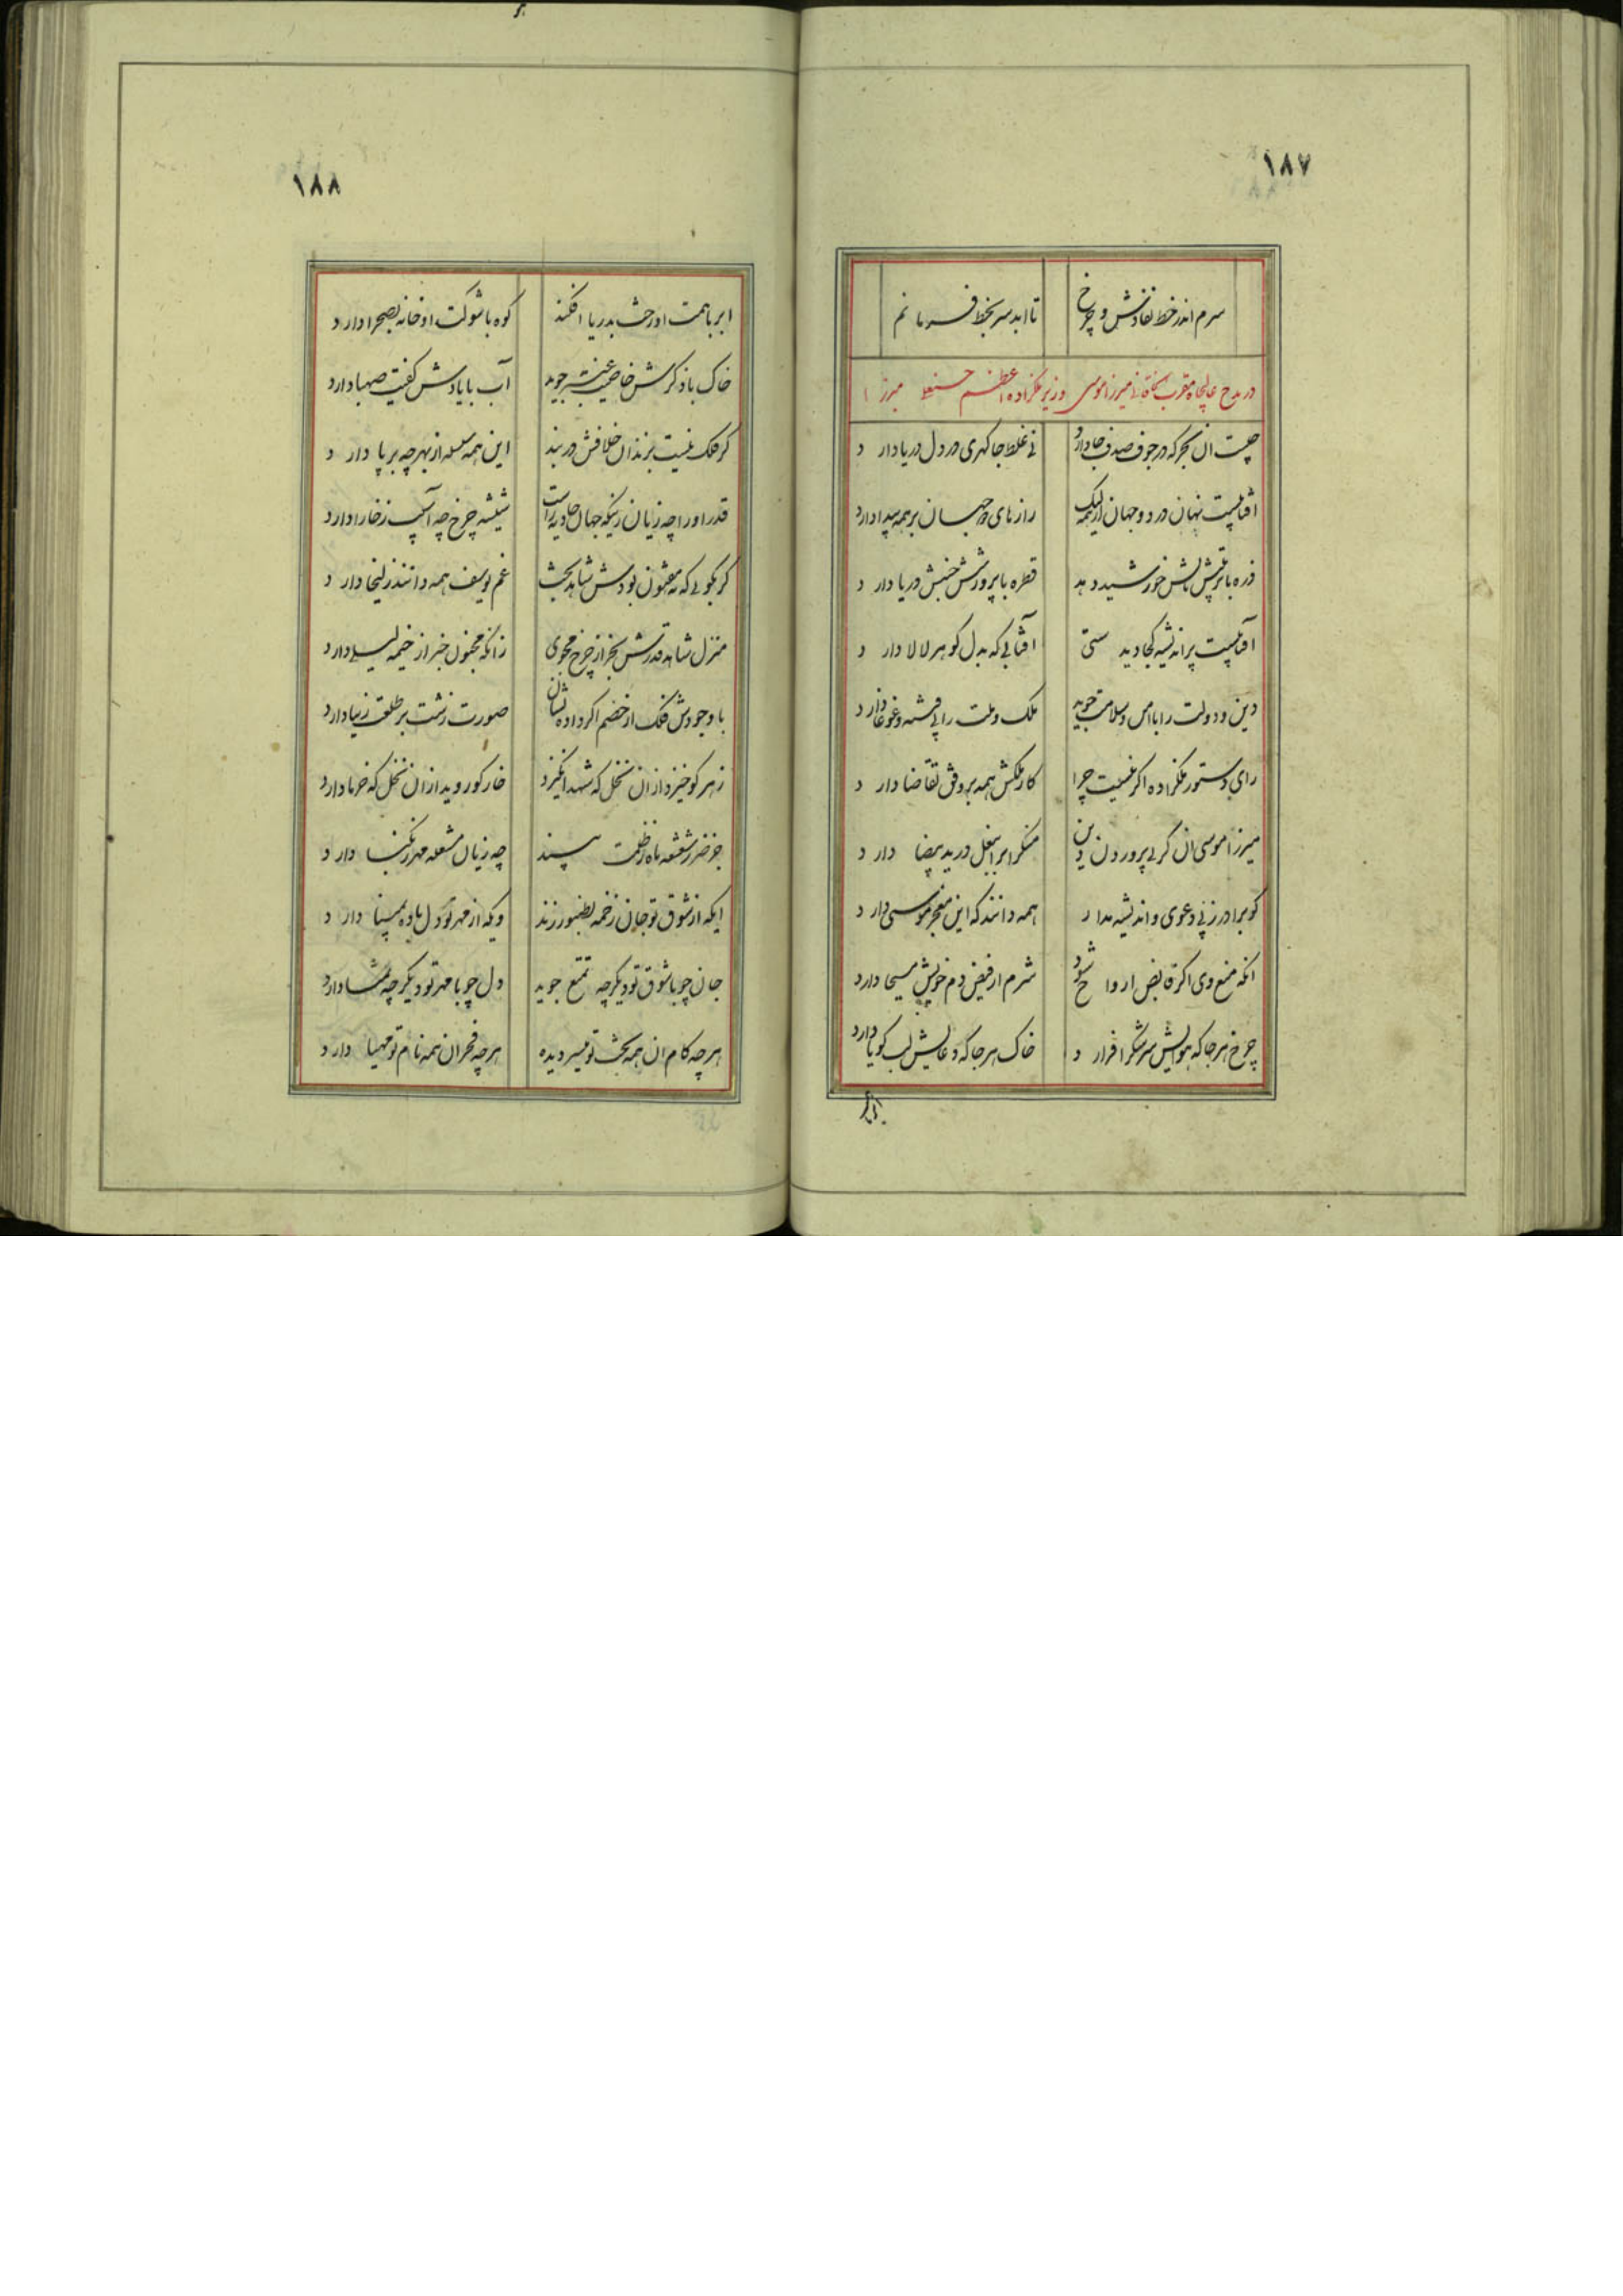 ۱۸۷
سرم اندر خط نفاذش و چرخ تا ابد سر بخط فرمانم
در مدح عالیجاه مقرب الخاقانی میرزا موسی وزیر ملکزاده اعظم حسنعلی میرزا
چیست آن بحر که در جوف صدف جا دارد نی غلط جا گهری در دل دریا دارد
آفتابیست نهان در دو جهان لیک رازهای دو جهان بر همه پیدا دارد
ذره با تابش خورشید دهد قطره با پرورشش جنبش دریا دارد
آفتابیست پر اندیشه کجا دید ستی آفتابی که بدل گوهر لالا دارد
دین و دولت را با امن و سلامت جوید ملک و ملت را بی فتنه و غوغا دارد
رای دستور ملکزاده اگر نیست چرا کار ملکش همه بر وفق تقاضا دارد
میرزا موسی آن کز پی پروردن دین منکر اندر بغل در ید بیضا دارد
گو برادر زپی دعوی و اندیشه مدار همه دانند که این معجز موسی دارد
آنکه منع وی اگر قابض ارواح شود شرم از فیض دم خویش مسیحا دارد
چرخ هرجا که هوایش سر شکر افرازد خاک هرجا که دعایش لب گویا دارد
ابر با
۱۸۸
ابر با همت او رخت بدریا افکند کوه با شوکت او خانه بصحرا دارد
خاک با ذکرش خاصیت عنبر جوید آب با یادش کیفیت صهبا دارد
گر فلک نیست بزندان خلافش در بند این همه سلسله از بهر چه بر پا دارد
قدر او را چه زیان زینکه جهان حادثه زاست شیشه چرخ چه آسیب ز خارا دارد
گر بگویی که نه مفتون بودش شاهد بخت غم یوسف همه دانند زلیخا دارد
منزل شاهد قدرش بجز از چرخ مجوی زانکه مجنون خبر از خیمه لیلی دارد
با وجودش فلک از خصم اگر داده نشان صورت زشت بر طلعت زیبا دارد
زهر کو خیزد از آن نخل که شهد انگیزد خار گو روید از آن نخل که خرما دارد
جو ضرر شعشعه ماه ز ظلمت بیند چه زیان مشعله مهر ز نکبا دارد
ایکه از شوق تو جان زخمه بطنبور زند ویکه از مهر تو دل باده بمینا دارد
جان چو با شوق تو دیگر چه تمتع جوید دل چو با مهر تو دیگر چه تمنا دارد
هر چه کام آن همه بخت تو میسر دیده هر چه فخر آن همه نام تو مهیا دارد